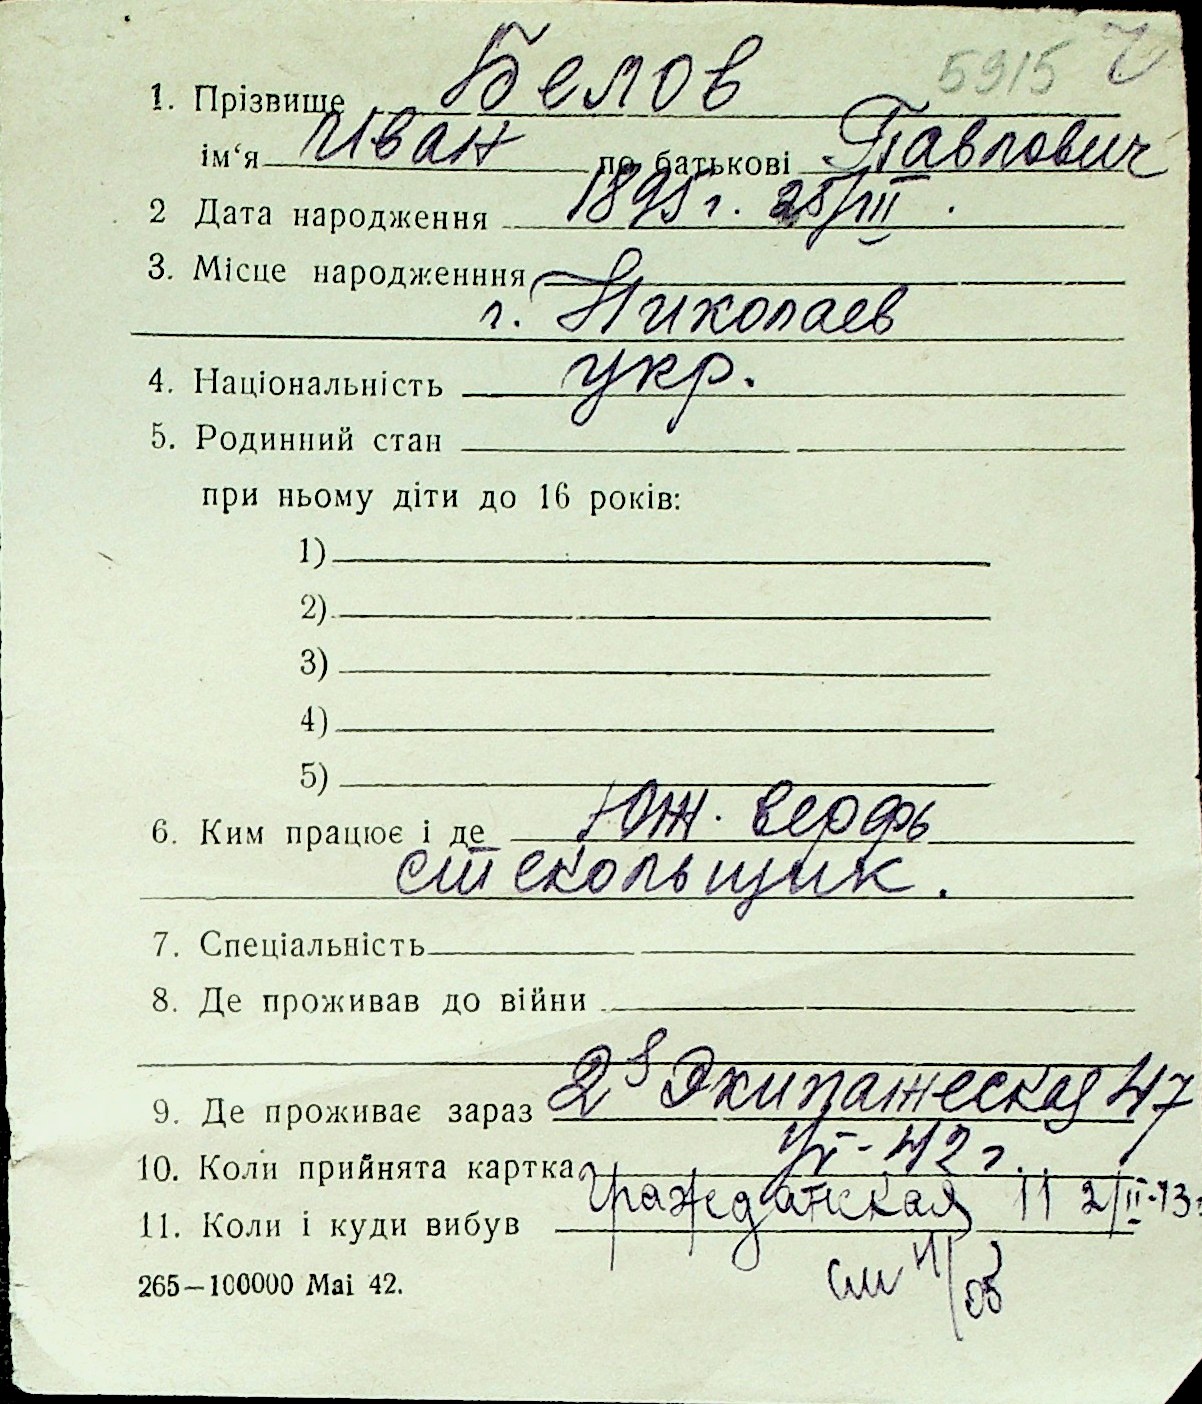 5915
1. Прізвище Белов
ім‘я Иван по батькові Павлович
2 Дата народження 1895 г. 25/III.
3. Місце народженння
г. Николаев
4. Національність укр.
5. Родинний стан
при ньому діти до 16 років:
1)
2)
3)
4)
5)
6. Ким працює і де Юж. верфь
стекольщик.
7. Спеціальність
8. Де проживав до війни
9. Де проживає зараз 2я Экипажеская 47
10. Коли прийнята картка 42 г.
11. Коли і куди вибув Гражданская 11 2/II-43г
265—100000 Mai 42.
см